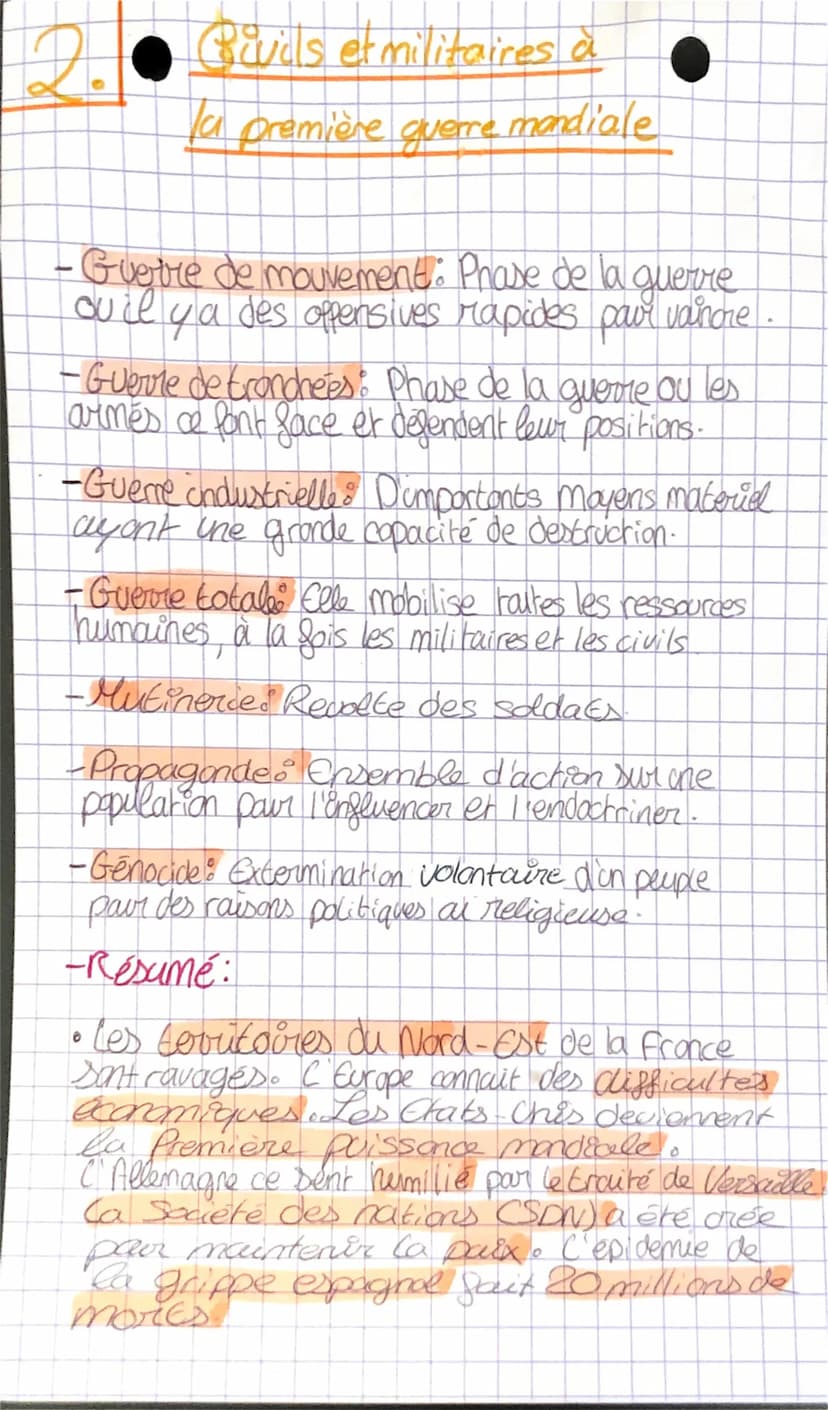 2. Civils et militaires à
la première guerre mondiale
- Guerre de mouvement : Phase de la guerre
ou il y a des offensives rapides pour vaincre.
- Guerre de tranchées : Phase de la guerre ou les
armés ce font face et défendent leur positions.
- Guerre industrielle : D'importants moyens materiel
ayant une grande capacité de destruction.
- Guerre totale : Cele mobilise toutes les ressources
humaines, à la fois les militaires et les civils
- Mutinerie : Revolte des soldats.
- Propagande : Ensemble d'action sur une
population pour l'influencer et l'endoctriner.
- Génocide : Extermination volontaire d'un peuple
pour des raisons politiques ou religieuse.
- Résumé :
• Les territoires du Nord-Est de la France
sont ravagés. L'Europe connait des difficultés
économiques. Les Etats-Unis deviennent
la Première puissance mondiale.
L'Allemagne ce sent humilié par le traité de Versaille
La Société des nations (SDN) a été crée
pour maintenir la paix. L'épidemie de
la grippe espagnol fait 20 millions de
morts.